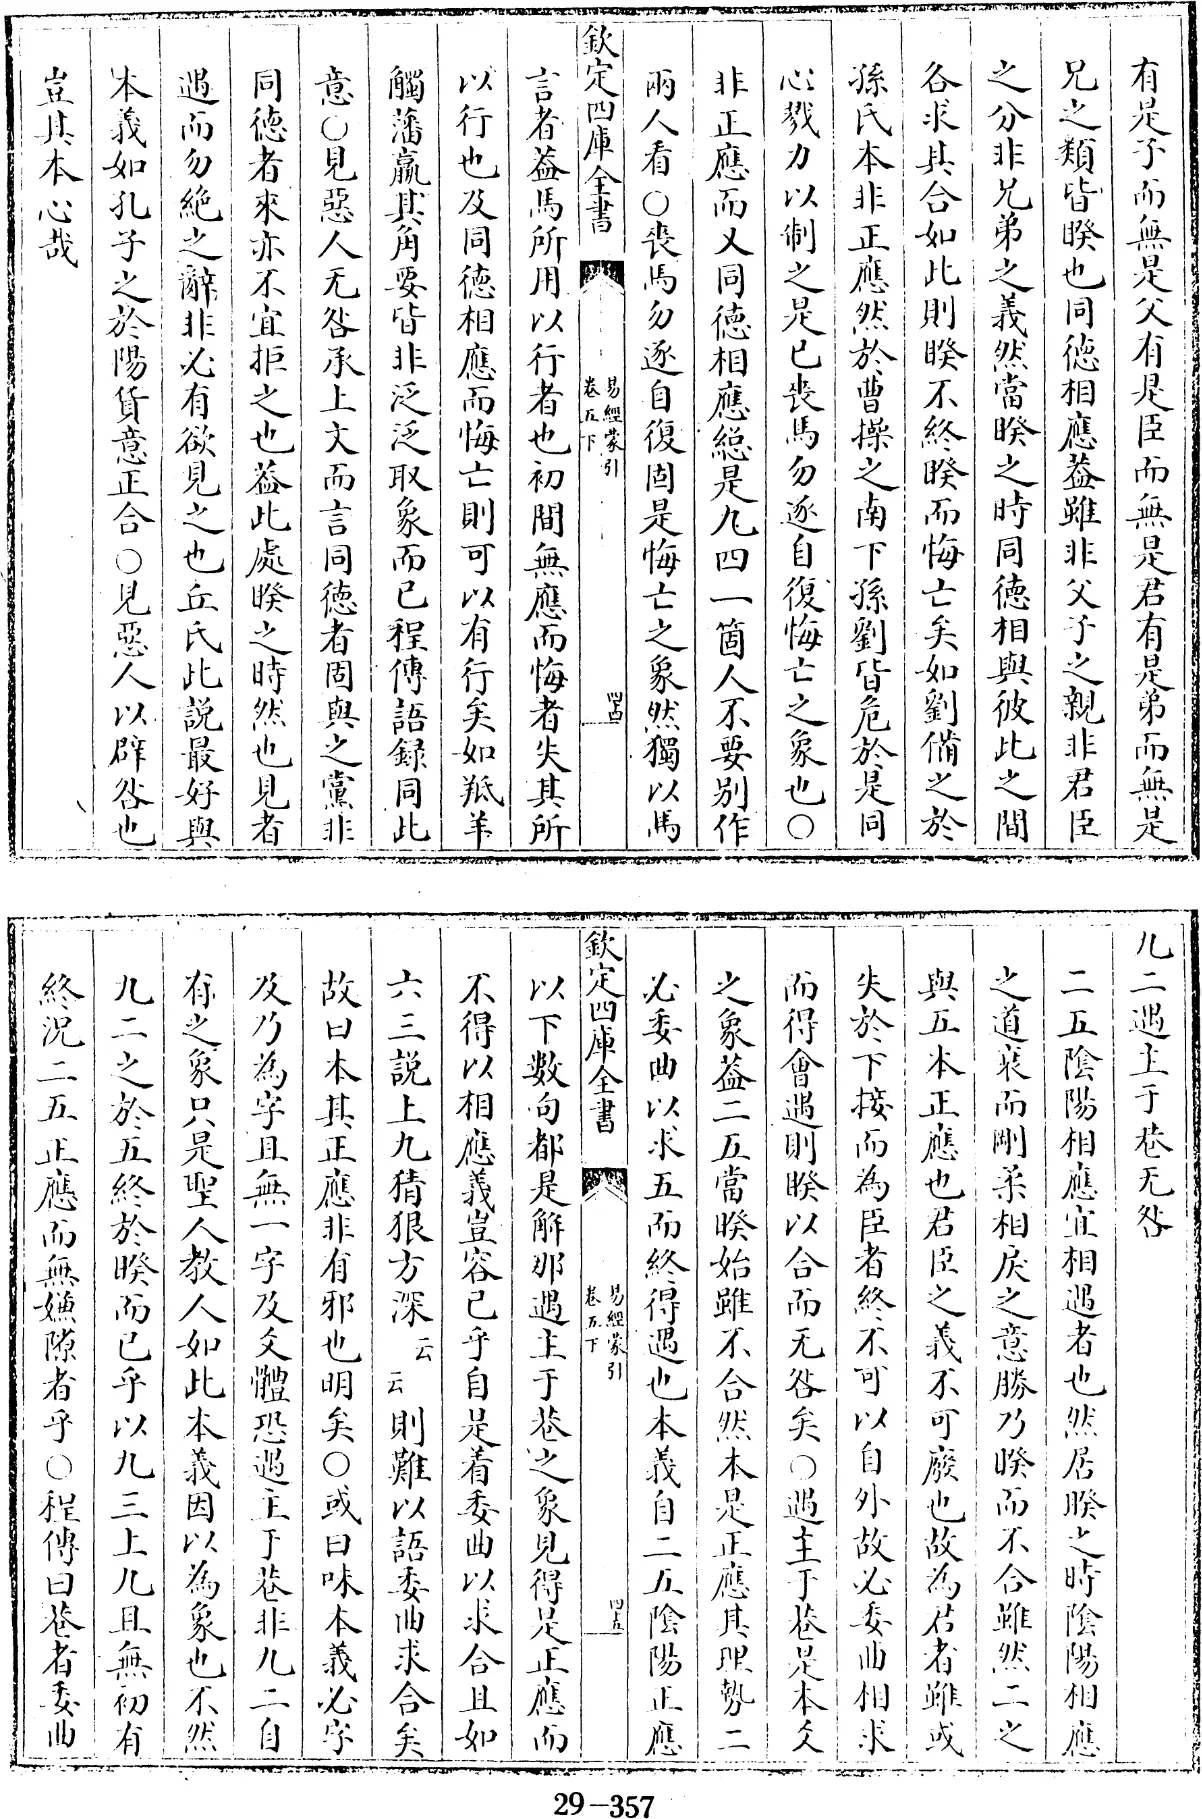 有是子而無是父有是臣而無是君有是弟而無是
兄之類皆睽也同徳相應葢雖非父子之親非君臣
之分非兄弟之義然當睽之時同徳相與彼此之間
各求其合如此則睽不終睽而悔亡矣如劉備之於
孫氏本非正應然於曹操之南下孫劉皆危於是同
心戮力以制之是已喪馬勿逐自復悔亡之象也〇
非正應而又同徳相應總是九四一箇人不要别作
兩人看〇喪馬勿逐自復固是悔亡之象然獨以馬
欽定四庫全書
易經蒙引
卷五下
四四
言者葢馬所用以行者也初間無應而悔者失其所
以行也及同徳相應而悔亡則可以有行矣如羝羊
觸藩羸其角要皆非泛泛取象而已程傳語録同此
意〇見惡人无咎承上文而言同徳者固與之黨非
同徳者來亦不宜拒之也葢此處睽之時然也見者
遇而勿絶之辭非必有欲見之也丘氏此説最好與
本義如孔子之於陽貨意正合〇見惡人以辟咎也
豈其本心哉
九二遇主于巷无咎
二五陰陽相應宜相遇者也然居睽之時陰陽相應
之道衰而剛柔相戾之意勝乃睽而不合雖然二之
與五本正應也君臣之義不可廢也故為君者雖或
失於下接而為臣者終不可以自外故必委曲相求
而得會遇則睽以合而无咎矣〇遇主于巷是本爻
之象葢二五當睽始雖不合然本是正應其理勢二
必委曲以求五而終得遇也本義自二五陰陽正應
欽定四庫全書
易經蒙引
卷五下
四五
以下數句都是解那遇主于巷之象見得是正應而
不得以相應義豈容已乎自是着委曲以求合且如
六三説上九猜狠方深云云則難以語委曲求合矣
故曰本其正應非有邪也明矣〇或曰味本義必字
及乃為字且無一字及爻體恐遇主于巷非九二自
有之象只是聖人教人如此本義因以為象也不然
九二之於五終於睽而已乎以九三上九且無初有
終況二五正應而無嫌隙者乎〇程傳曰巷者委曲
29-357